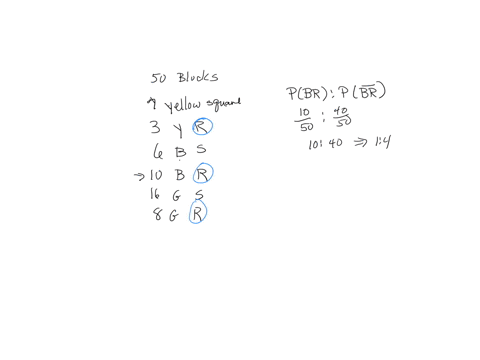 50 Blocks
7 yellow square
3 Y R
6 B S
→ 10 B R
16 G S
8 G R
P(BR) : P(B̅R̅)
10/50 : 40/50
10 : 40 ⇒ 1:4